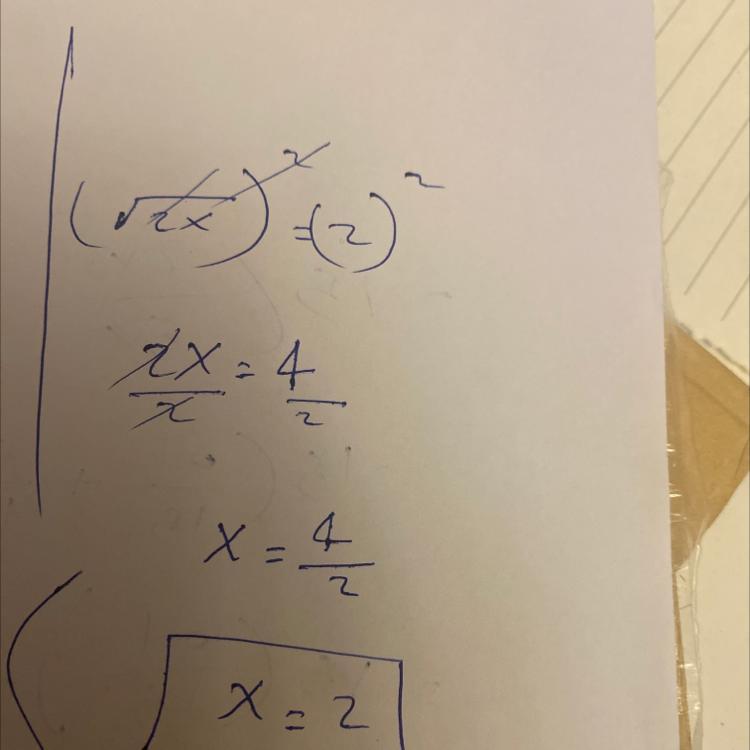 (√2x)² = (2)²
2x/2 = 4/2
x = 4/2
x = 2